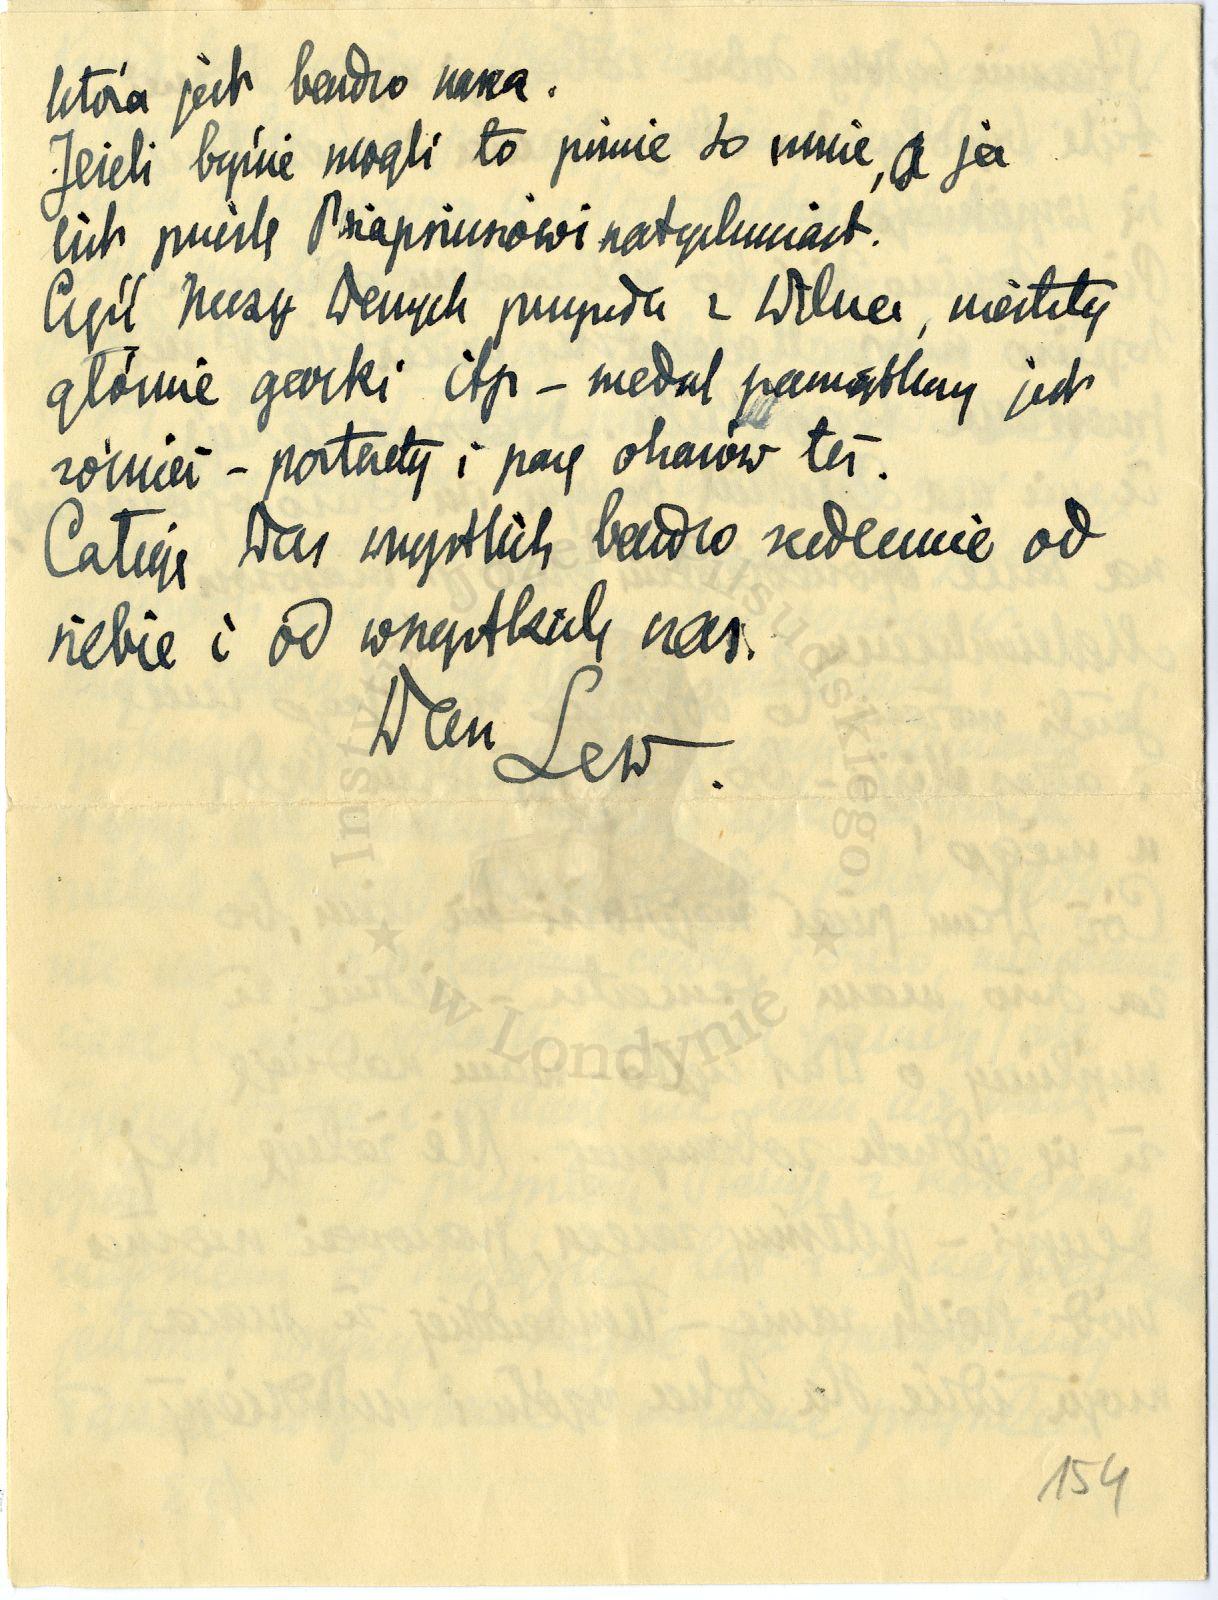 która jest bardzo nasza.
Jeżeli byście mogli to piszcie do mnie, a ja
list prześlę natychmiast.
Część Waszych przyszła z Wilna, niestety
głównie garki itp – medal pamiątkowy jest
również – portrety i parę obrazów też.
Całuję Was wszystkich bardzo serdecznie od
siebie i od wszystkich nas.
Wasz Lew.
Instytut Józefa Piłsudskiego
w Londynie
154